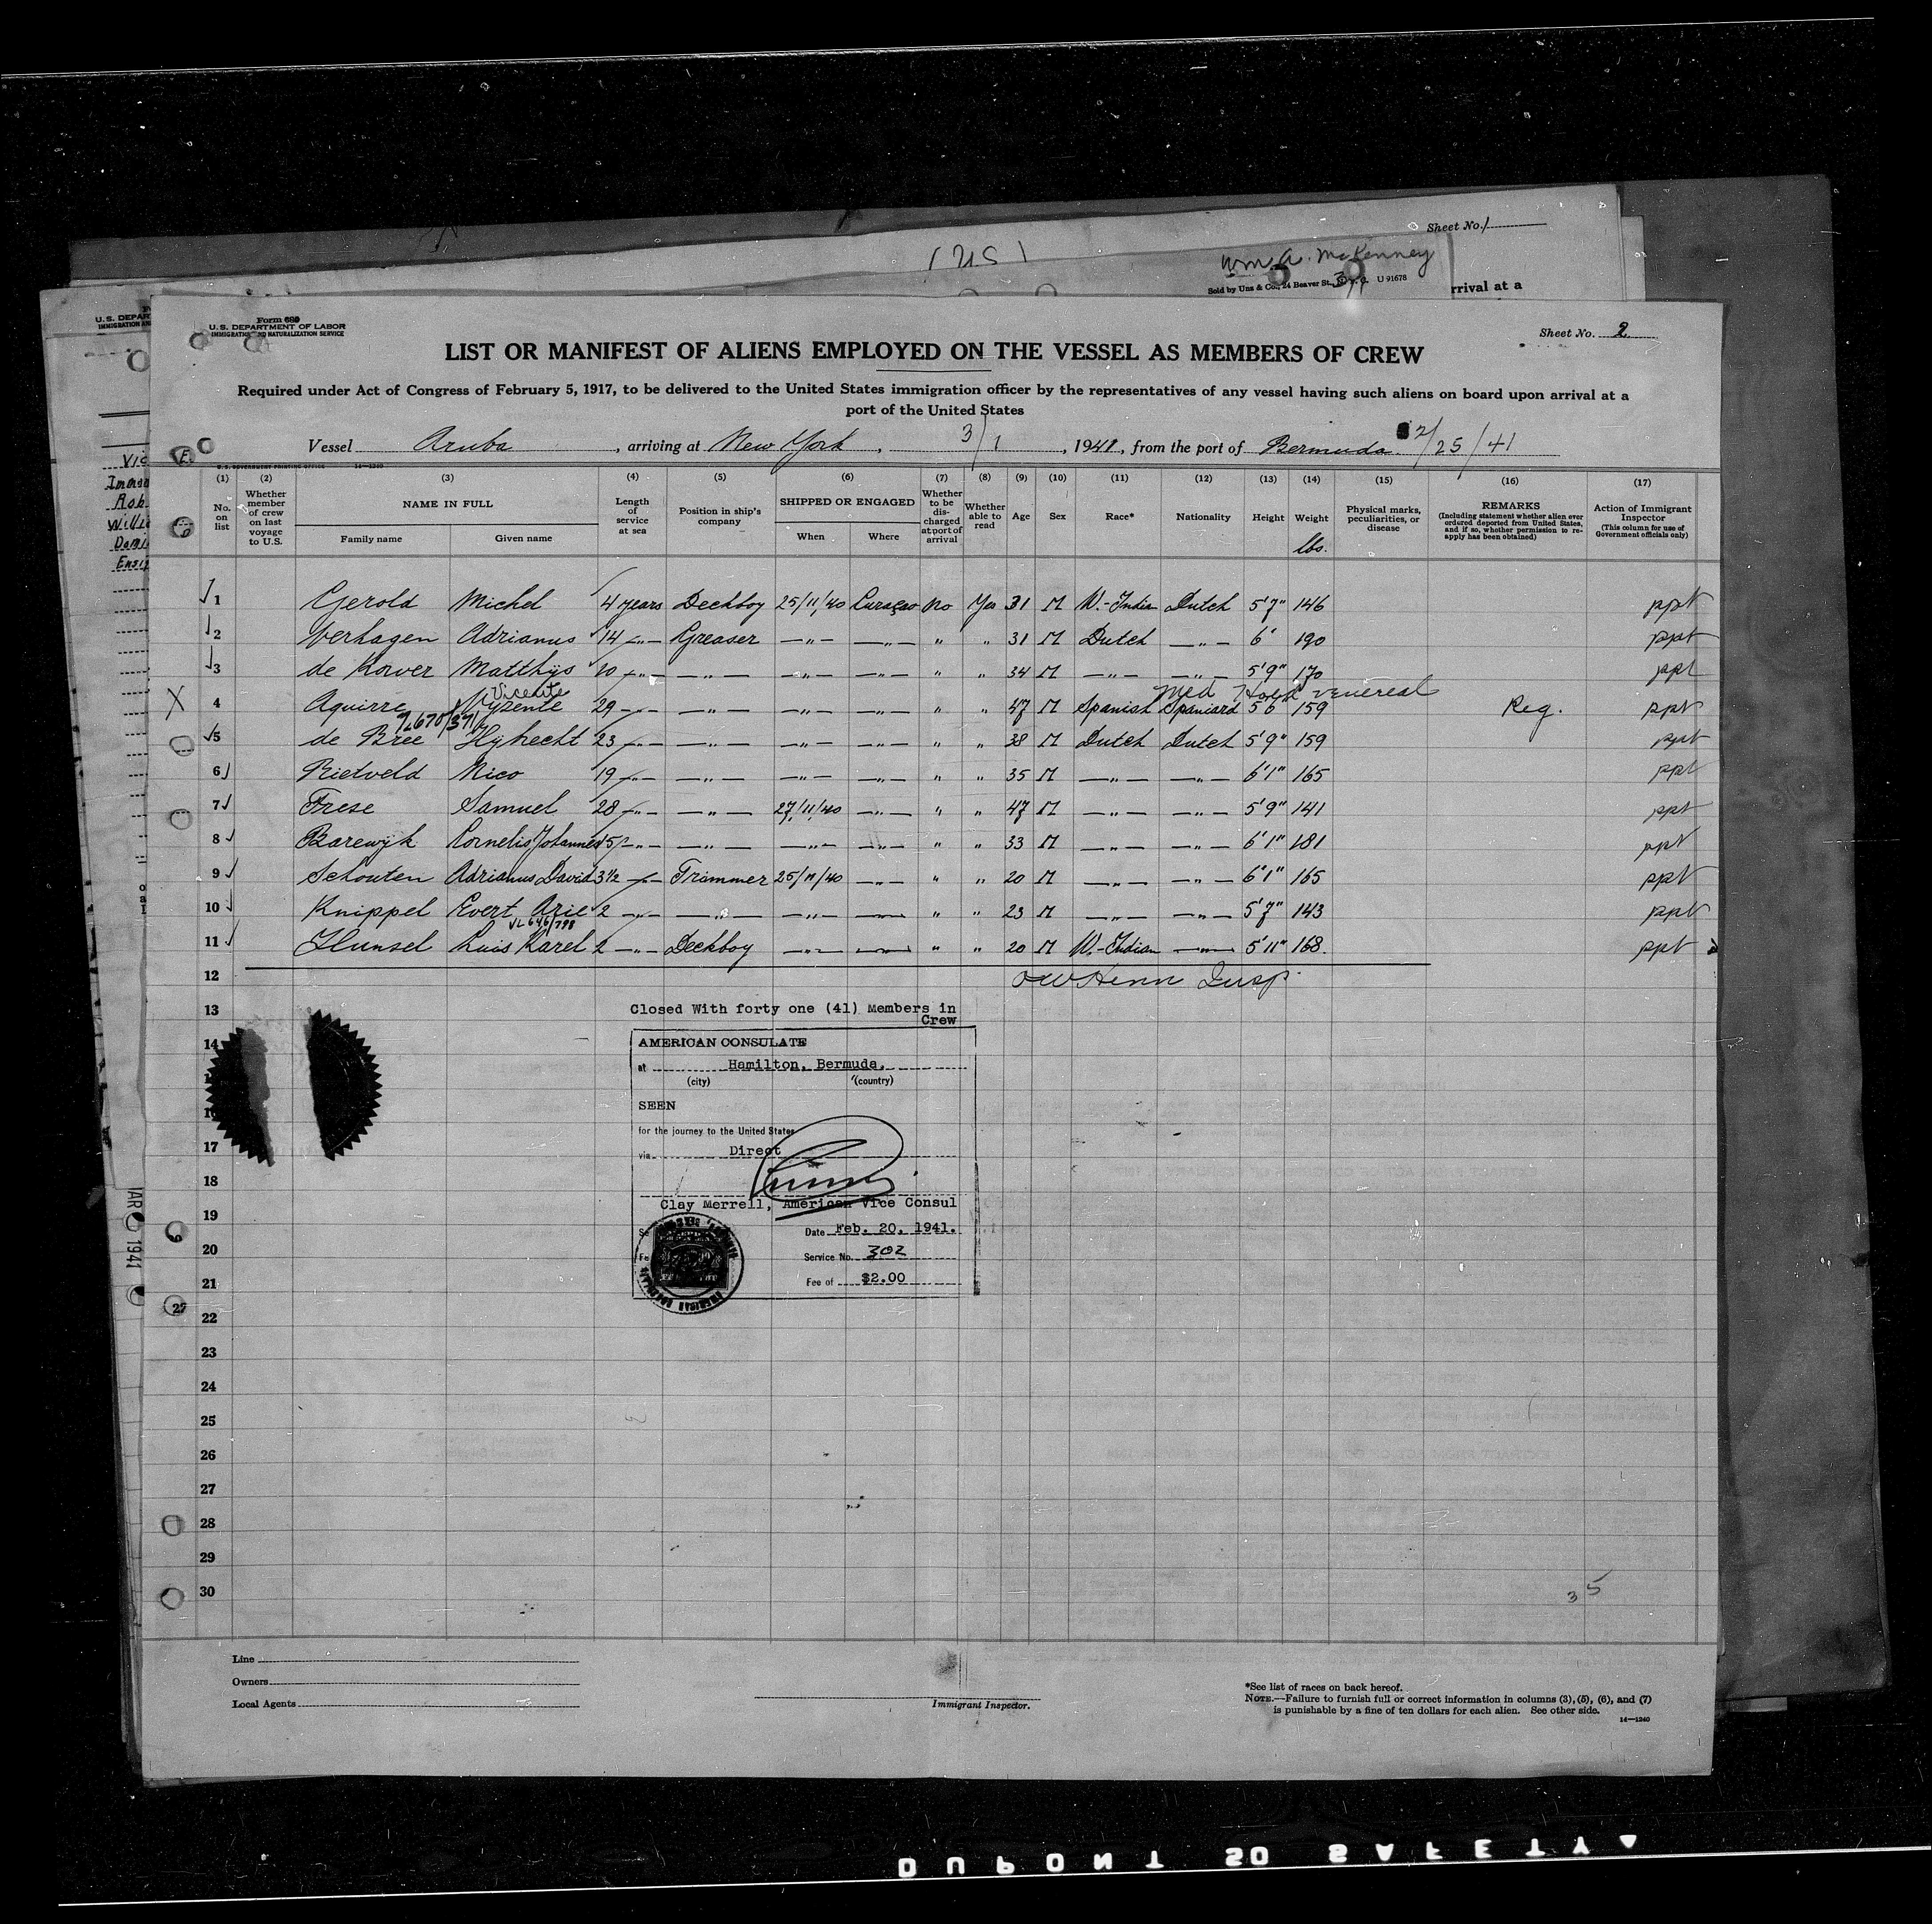 Sheet No. 1
(US)
Wm. A. McKenney
Sold by Unz & Co., 24 Beaver St., N.Y.C. U 91678
rrival at a
U.S. DEPAR
IMMIGRATION AN
Form 689
U. S. DEPARTMENT OF LABOR
IMMIGRATION AND NATURALIZATION SERVICE
Sheet No. 2
LIST OR MANIFEST OF ALIENS EMPLOYED ON THE VESSEL AS MEMBERS OF CREW
Required under Act of Congress of February 5, 1917, to be delivered to the United States immigration officer by the representatives of any vessel having such aliens on board upon arrival at a
port of the United States
Vessel Aruba, arriving at New York, 3/1, 1941, from the port of Bermuda. 2/25/41
U. S. GOVERNMENT PRINTING OFFICE 14—1240
(1) (2) (3) (4) (5) (6) (7) (8) (9) (10) (11) (12) (13) (14) (15) (16) (17)
No. on list Whether member of crew on last voyage to U.S. NAME IN FULL Family name Given name Length of service at sea Position in ship's company SHIPPED OR ENGAGED When Where Whether to be discharged at port of arrival Whether able to read Age Sex Race* Nationality Height Weight lbs. Physical marks, peculiarities, or disease REMARKS (Including statement whether alien ever ordered deported from United States, and if so, whether permission to reapply has been obtained) Action of Immigrant Inspector (This column for use of Government officials only)
1 Gerold Michel 4 years Deckboy 25/11/40 Curaçao no Yes 31 M W.-Indian Dutch 5'7" 146 ppt
2 Verhagen Adrianus 14 —"— Greaser —"— —"— " " 31 M Dutch —"— 6' 190 ppt
3 de Korver Matthijs 10 —"— —"— —"— —"— " " 34 M —"— —"— 5'9" 170 ppt
Vicente Med Hold venereal
X 4 Aguirre Vyzente 29 —"— —"— —"— —"— " " 47 M Spanish Spaniard 5'6" 159 Reg. ppt
5 de Bree Hybrecht 23 —"— —"— —"— —"— " " 38 M Dutch Dutch 5'9" 159 ppt
6 Rietveld Nico 19 —"— —"— —"— —"— " " 35 M —"— —"— 6'1" 165 ppt
7 Frese Samuel 28 —"— —"— 27/11/40 —"— " " 47 M —"— —"— 5'9" 141 ppt
8 Barewijk Cornelis Johannes 15 —"— —"— —"— —"— " " 33 M —"— —"— 6'1" 181 ppt
9 Schouten Adrianus David 3½ —"— Trimmer 25/11/40 —"— " " 20 M —"— —"— 6'1" 165 ppt
10 Knippel Evert Arie 2 —"— —"— —"— —"— " " 23 M —"— —"— 5'7" 143 ppt
VL 646/798
11 Hunsel Luis Karel 2 —"— Deckboy —"— —"— " " 20 M W.-Indian —"— 5'11" 168. ppt
12
OW Henn Insp.
13
Closed With forty one (41) Members in
Crew
14
AMERICAN CONSULATE
at Hamilton, Bermuda.
(city) (country)
SEEN
for the journey to the United States
17
via Direct
18
Clay Merrell, American Vice Consul
19
Date Feb. 20, 1941.
20
Service No. 302
21
Fee of $2.00
22
23
24
25
26
27
28
29
30
35
Line
Owners
Local Agents
Immigrant Inspector.
*See list of races on back hereof.
NOTE.—Failure to furnish full or correct information in columns (3), (5), (6), and (7)
is punishable by a fine of ten dollars for each alien. See other side.
14—1240
DUPONT SO SAFETY